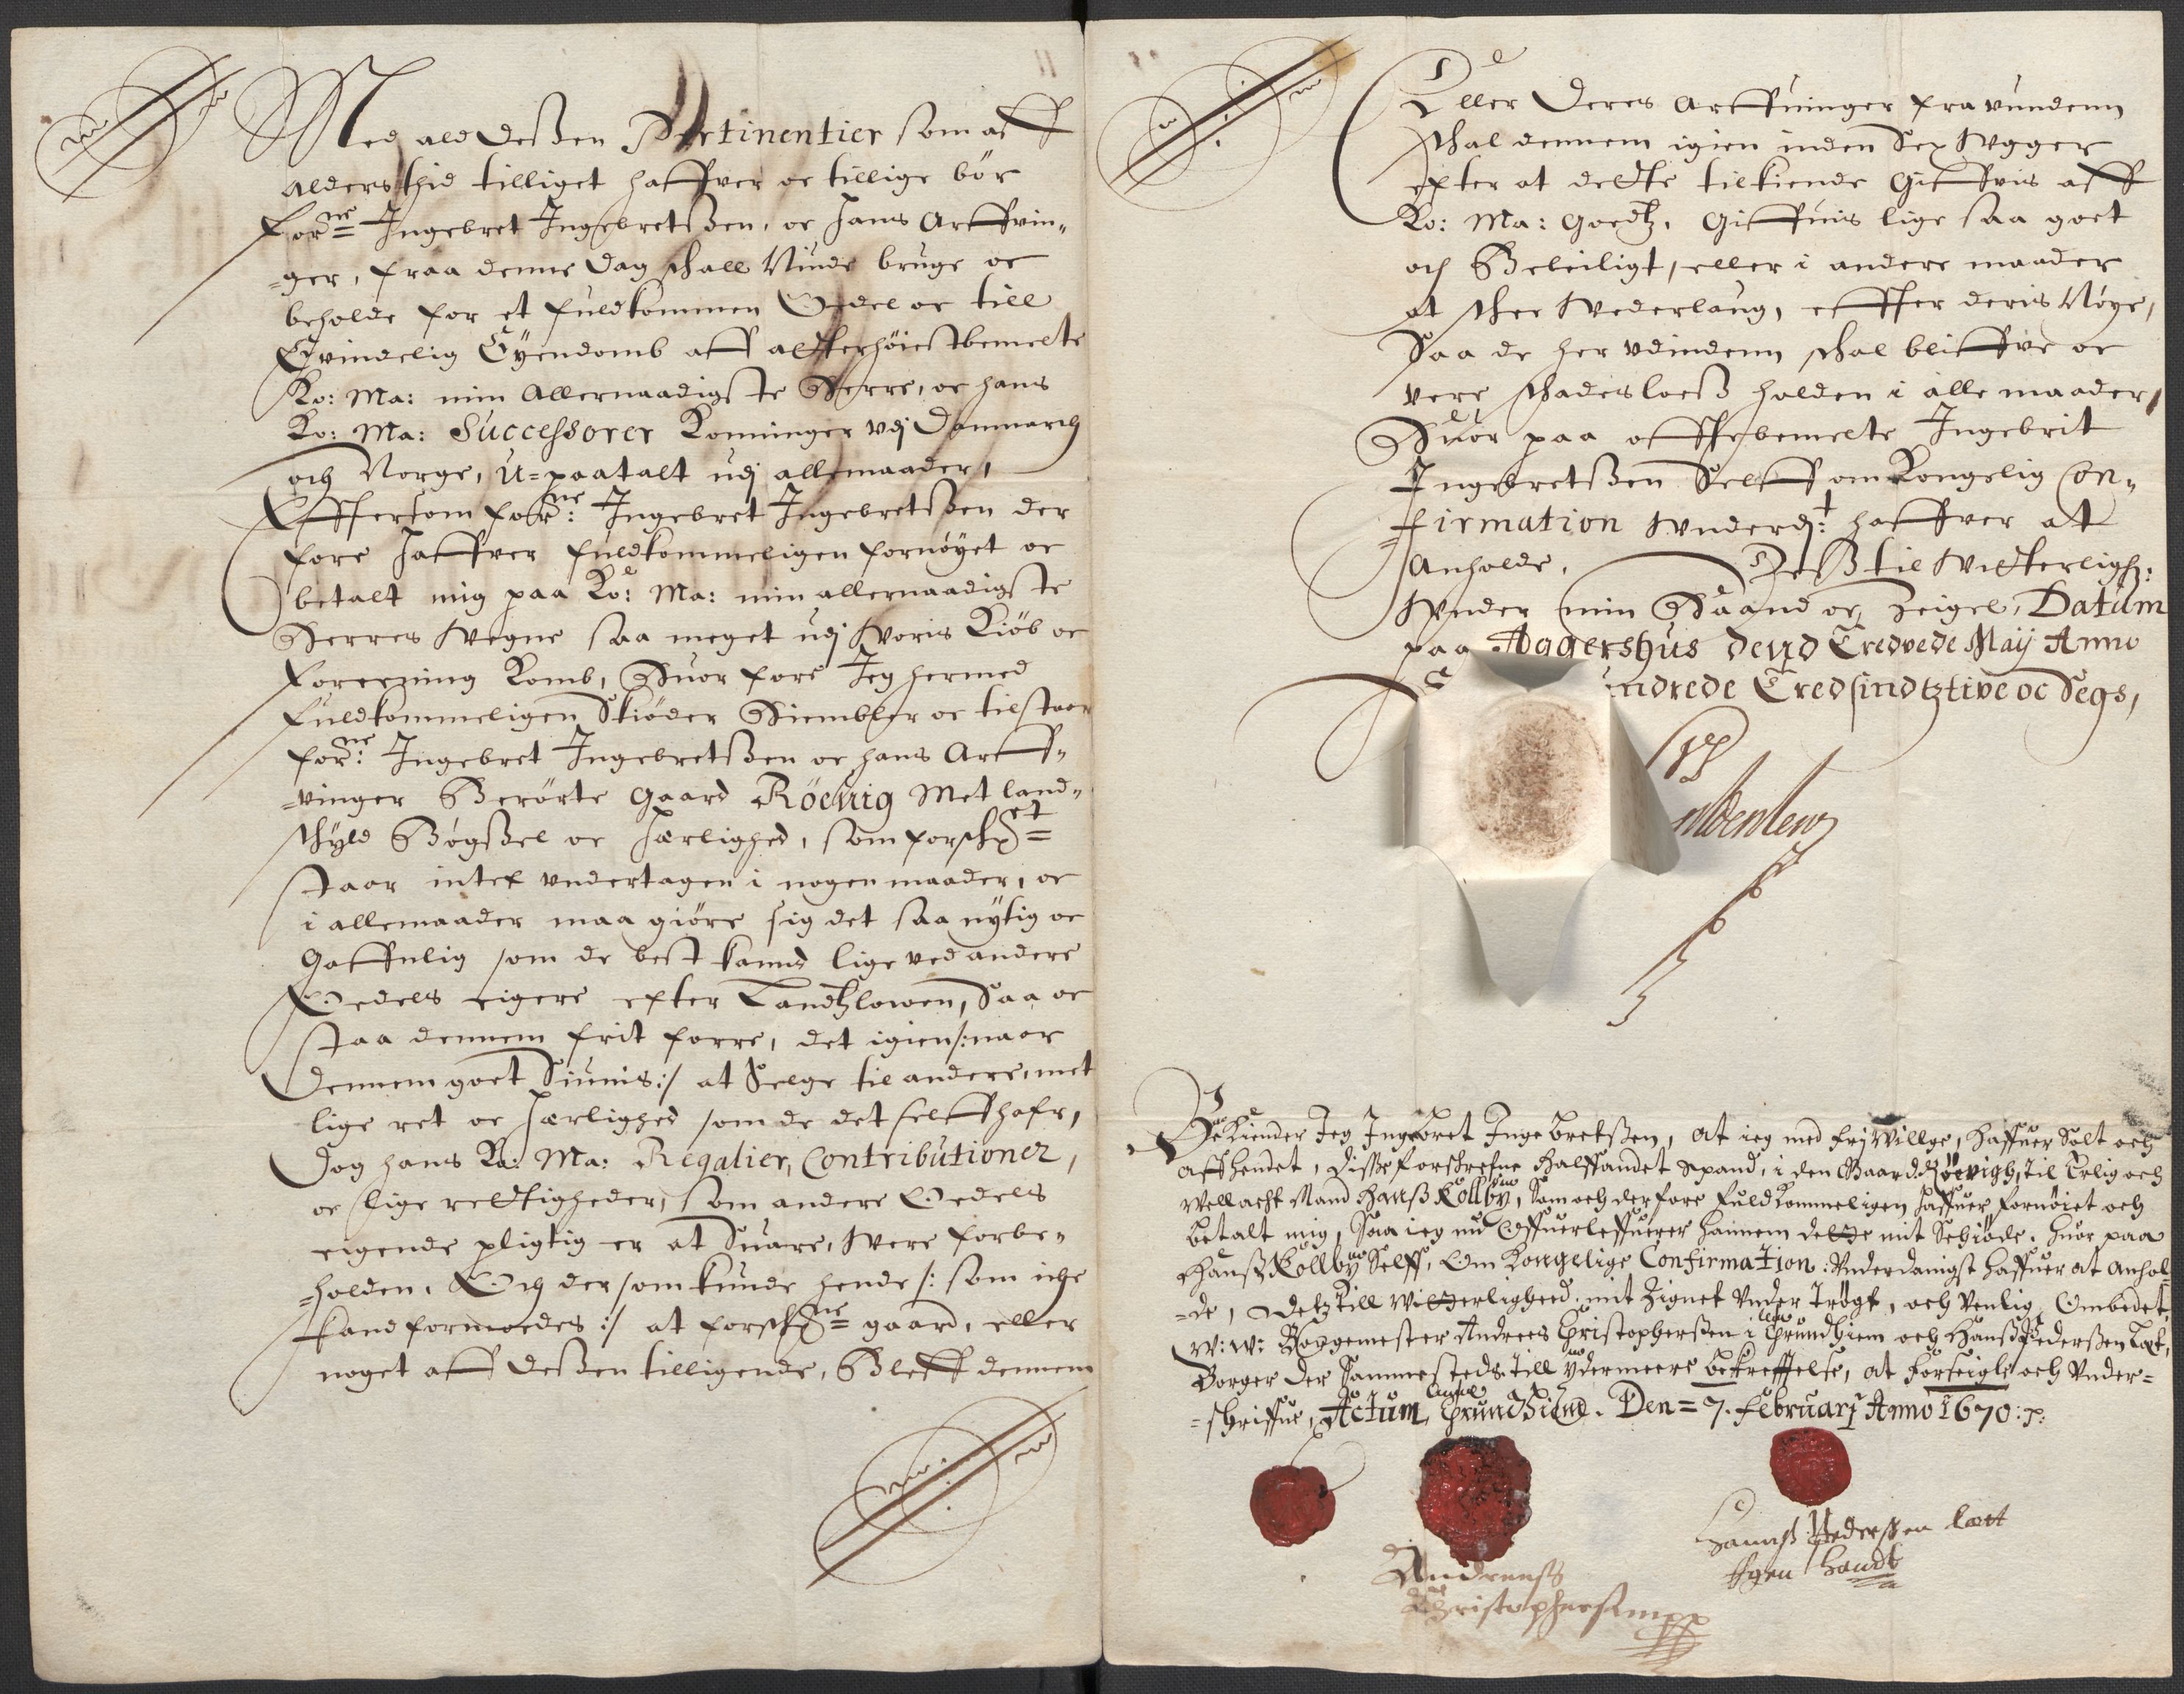 Med ald deßen Pertinentier som aff
alders thid tilliget haffver oc tillige bör
forne Ingebret Ingebretsßen, oc hans Arffvin„
„ger, fraa denne dag schall Niude bruge oc
beholde for et fuldkommen Odel oc till
Evindelig Eÿendomb aff alsterhöiestbemelte
Ko: Ma: min Allernaadigste Herre, oc hans
Ko: Ma: Successorer Konninger vdj Danmarch
och Norge, U=paatalt udj allemaader,
Effter som forne: Ingebret Ingebretsßen der
fore haffver fuldkommeligen fornöyet oc
betalt mig paa Ko: Ma: min allernaadigste
Herres Wegne saa meget udj Woris Kiöb oc
Foreening Komb, Huor fore Jeg hermed
fuldkommeligen Skiöder Hiembler oc tilstaar
forne: Ingebret Ingebretsßen oc hans Arff„
„vinger Berörte gaard Röevig Met land„
schÿld Bögßel oc herlighed, som forschet=
staar intet undertagen i nogen maader, oc
i allemaader maa giöre sig det saa nÿtig oc
gaffnlig som de best kand lige ved andere
Oedels eigere efter Landtzlowen, Saa oc
staa dennem frit forre, det igien /: naar
dennem goet Siunis :/ at Selge til andere, met
lige ret oc herlighed som de det selff hafr,
Dog hans Ko: Ma: Regalier, Contributioner,
oc lige rettigheder, som andere Oedels
eigende pligtig er at Suare, Were forbe„
„holden. Och der som kunde hende /: som iche
kand formoedes :/ at forschne= gaard, eller
noget aff deßen tilligende, Bleff dennem
Eller deres Arffuinger fra vundenn
schal dennem igien inden Sex Wgger
efter at dette tilkiende Giffvis aff
Ko: Ma: Goedtz, Giffuis lige saa goet
och Beleiligt, eller i andere maader
at schee Wederlaug, effter deris Nöye,
Saa de her udindenn schal bliffve oc
vere schadesloeß holden i alle maader,
Huor paa offtebemelte Ingebrit
Ingebretsßen Selff om Kongelig Con„
„firmation Wnderd:t haffver at
Anholde. Deß til Witterligh:
Wnder min Haand oc Zeigel, Datum
paa Aggershus dend Tredvede Maÿ Anno
ndrede Tredsindtztive oc Segs,
ldenlew
Bekiender Jeg Ingebret Ingebretsßen, at ieg med frj Willge, haffuer Solt och
affhendet, disse forschrefne Halffandet Spand, i den Gaard Röevigh, til Erlig och
Wellacht Mand Hanß Köllby, Som och der fore fuldkommeligen haffuer fornöiet och
betalt mig, Saa ieg nu Offuerleffuerer hannem dette mit Schiöde. Huor paa
Hanß Köllby Selff, Om Kongelige Confirmation: Underdanigst haffuer at anhol
=de, Detz till Witterligheed mit Zignet under Trögt, och Venlig Ombedet,
W: W: Borgemester Andrees Christophersßen i Thrundhiem och Hanß Pedersßen Lært,
Borger der Sammesteds. till ÿdermeere bekrefftelse, at Forseigle och Under=
=schriffue, Actum, Thrundhiem. Den = 7. Februarj Anno 1670: p:
Andreas
Christophersßen mpp
Hannß Pedersßen Lært
Egen Handt